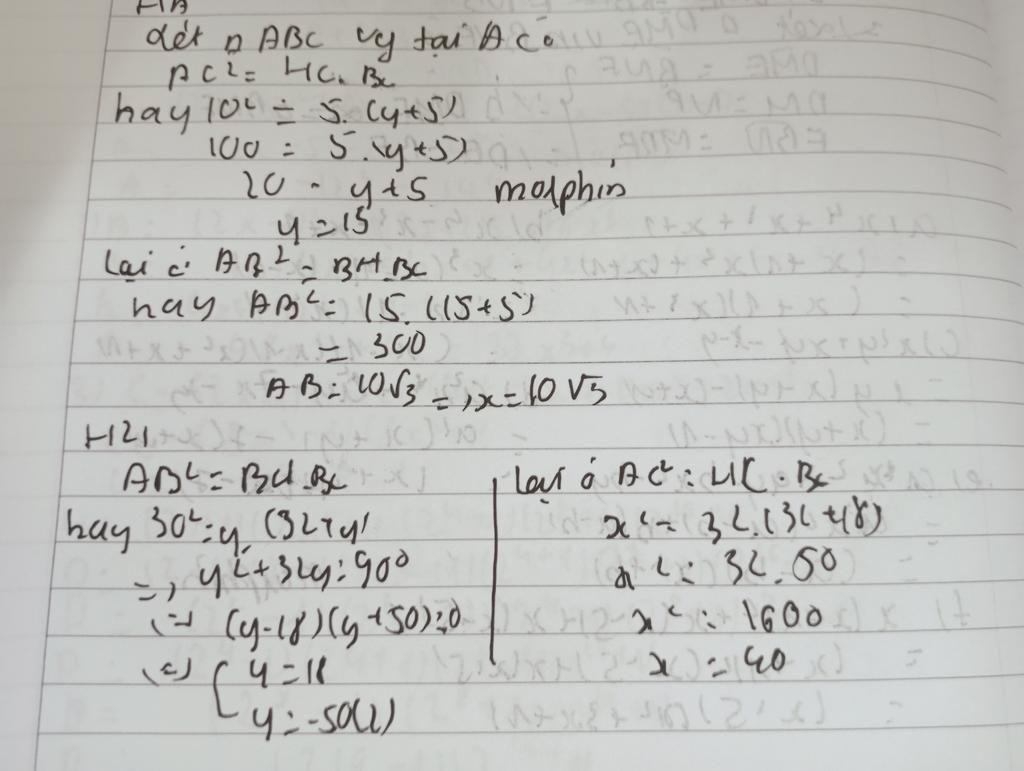 H1A
Xét △ ABC vg tại A có
AC² = HC. BC
hay 10² = 5. (y+5)
100 = 5.(y+5)
20 = y+5 molphin
y = 15
Lại có AB² = BH.BC
hay AB² = 15. (15+5)
= 300
AB = 10√3 => x = 10√3
H21
AB² = BH.BC
hay 30² = y. (32+y)
=> y² + 32y = 900
<=> (y-18)(y+50)=0
<=> [ y = 18
y = -50(l)
Lại có AC² = HC . BC
x² = 32.(32+18)
x² = 32.50
x² = 1600
x = 40